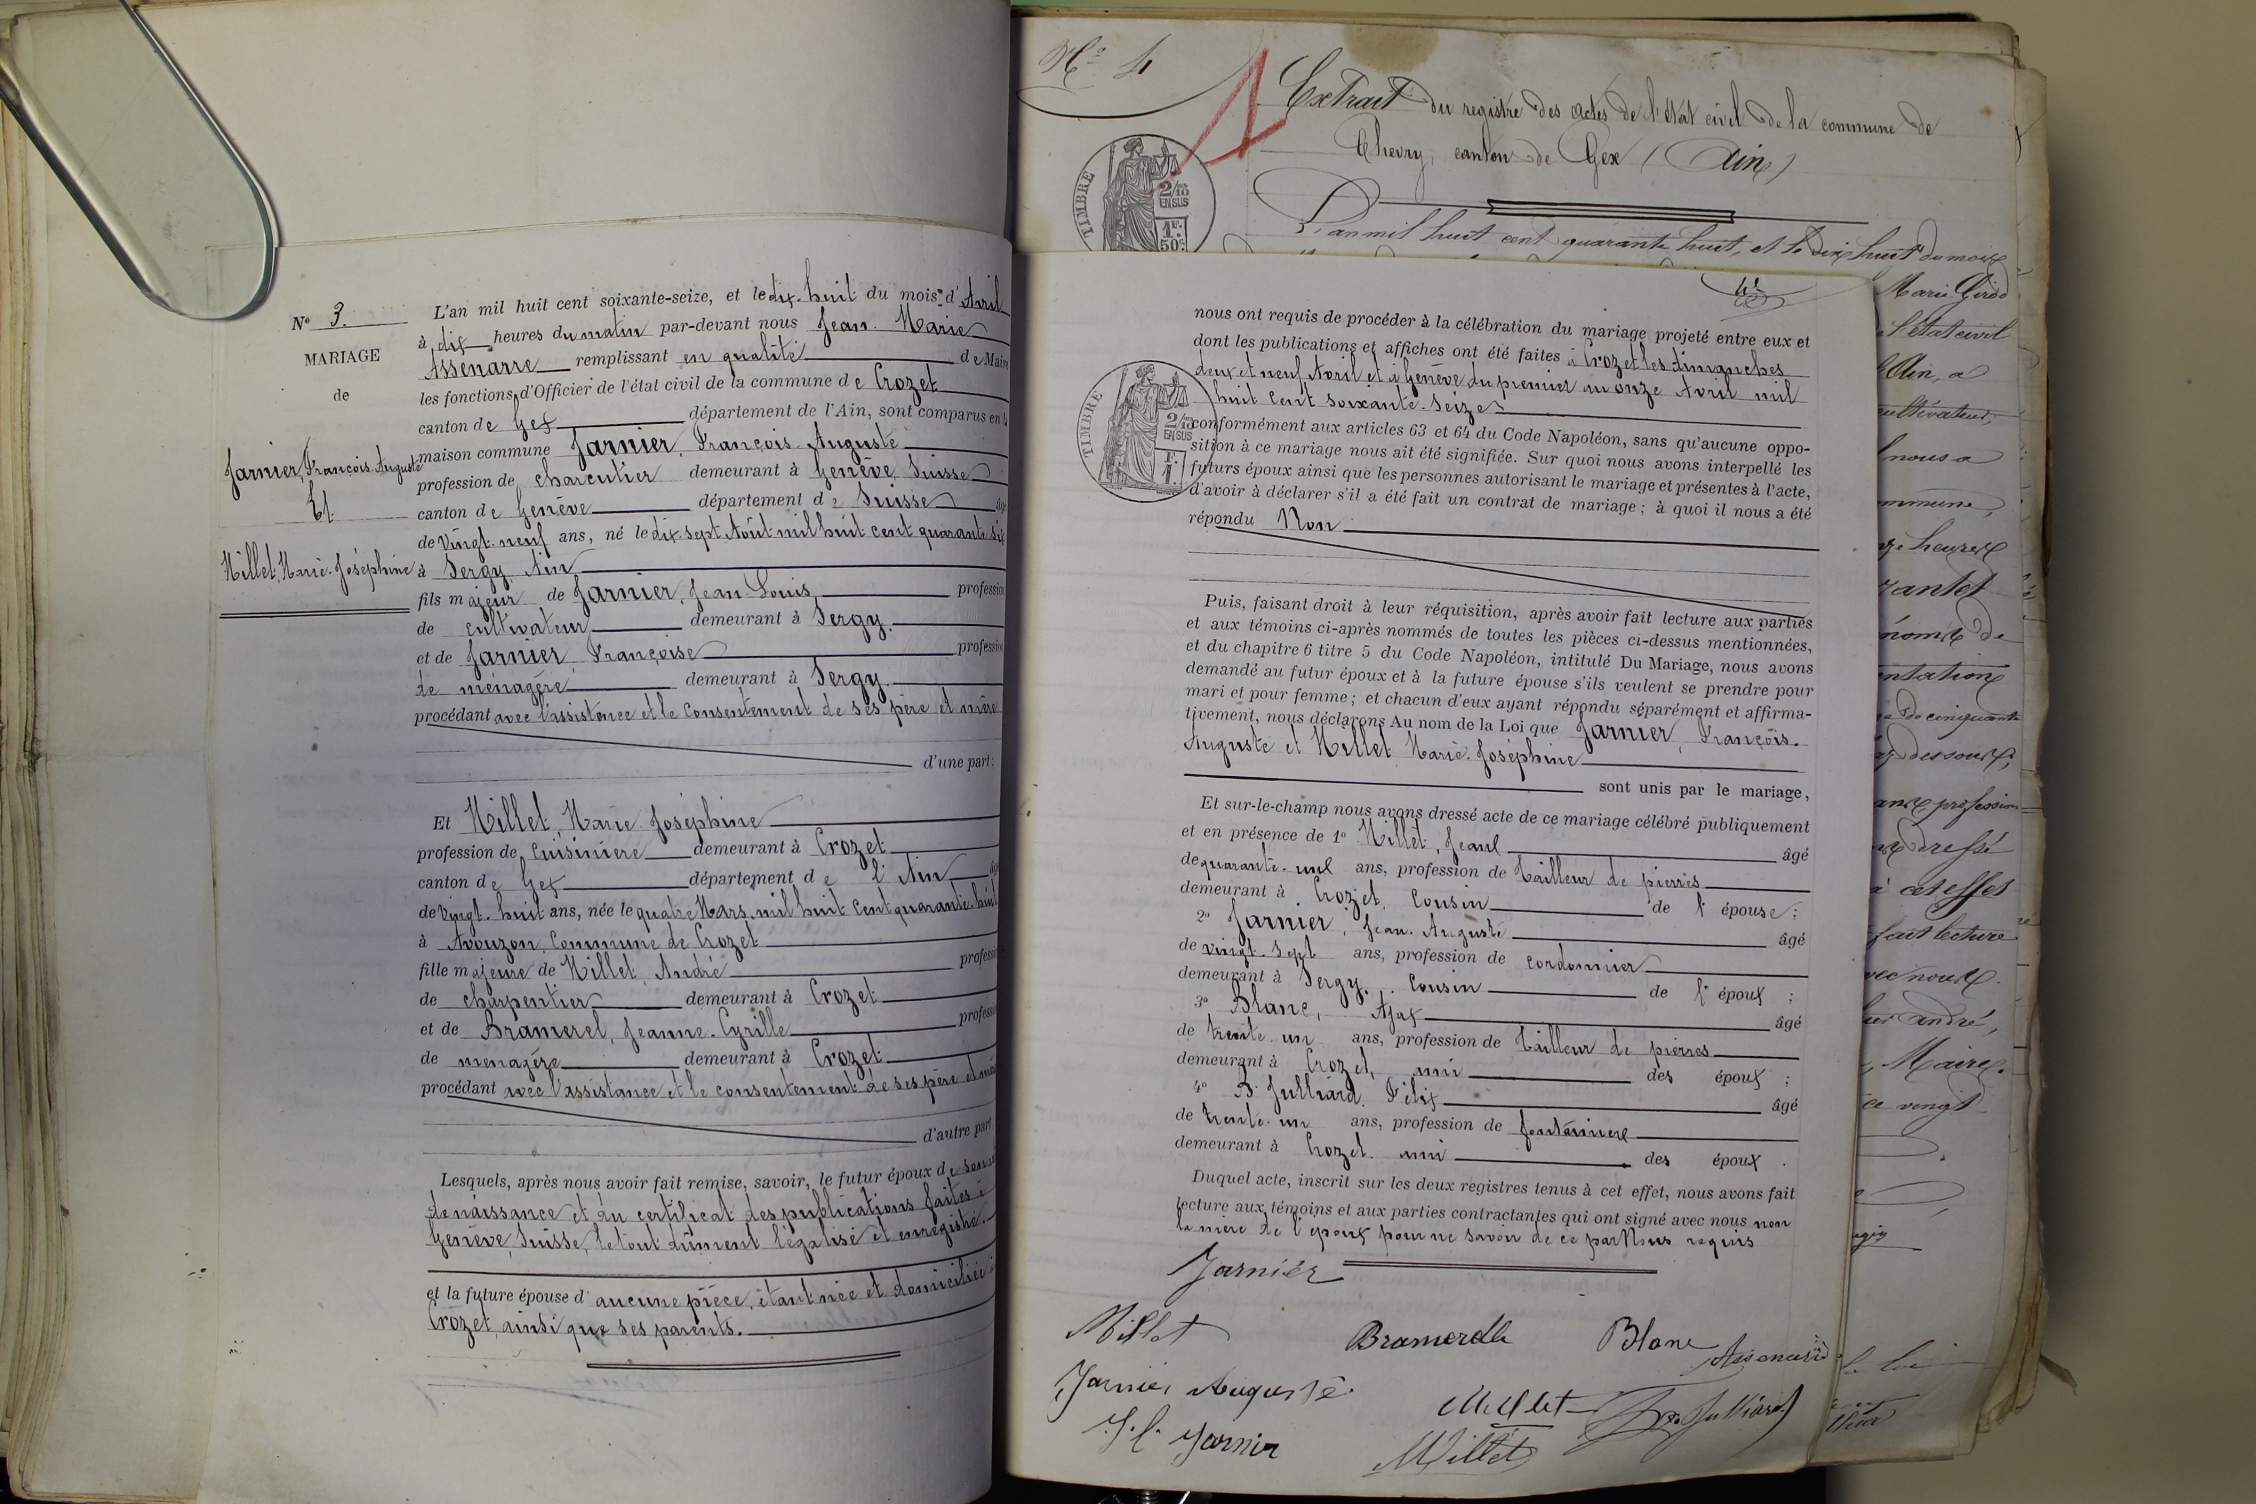 N° 3.
MARIAGE
de
Jarnier, François-Auguste
Et
Millet, Marie-Joséphine
L'an mil huit cent soixante-seize, et le dix-huit du mois d'Avril
à dix heures du matin par-devant nous Jean-Marie
Assenarre remplissant en qualité de Maire
les fonctions d'Officier de l'état civil de la commune de Crozet
canton de Gex département de l'Ain, sont comparus en la
maison commune Jarnier, François-Auguste
profession de charcutier demeurant à Genève Suisse
canton de Genève département de Suisse âgé
de Vingt-neuf ans, né le dix-sept Août mil huit cent quarante-six
à Sergy Ain
fils majeur de Jarnier, Jean-Louis, profession
de cultivateur demeurant à Sergy.
et de Jarnier Françoise profession
de ménagère demeurant à Sergy.
procédant avec l'assistance et le consentement de ses père et mère
d'une part:
Et Millet, Marie-Joséphine
profession de Cuisinière demeurant à Crozet
canton de Gex département de l'Ain âgé
de Vingt-huit ans, née le quatre Mars mil huit cent quarante-huit
à Avouzon, Commune de Crozet
fille majeure de Millet, André profession
de charpentier demeurant à Crozet
et de Bramerel, Jeanne-Cyrille profession
de menagère demeurant à Crozet
procédant avec l'assistance et le consentement de ses père et mère
d'autre part
Lesquels, après nous avoir fait remise, savoir, le futur époux de son
de naissance et du certificat des publications faites à
Genève, Suisse, le tout dûment légalisé et enregistré.
et la future épouse d'aucune pièce, étant née et domiciliée à
Crozet, ainsi que ses parents.
N° 4
Extrait du registre des actes de l'état civil de la commune de
Chevry, canton de Gex (Ain)
TIMBRE
2/10
EN SUS
1F.
50c
L'an mil huit cent quarante huit, et le dix huit du mois
Marie Girod
l'état civil
Ain, a
cultivateur,
nous a
commune,
heures
nom de
de cinquante
dessous,
profession
dressé
à cet effet
fait lecture
avec nous.
andré,
Maire.
vingt
4
nous ont requis de procéder à la célébration du mariage projeté entre eux et
dont les publications et affiches ont été faites à Crozet les dimanches
deux et neuf Avril et à Genève du premier au onze Avril mil
huit cent soixante-seize
TIMBRE
2/10
EN SUS
1F.
conformément aux articles 63 et 64 du Code Napoléon, sans qu'aucune oppo-
sition à ce mariage nous ait été signifiée. Sur quoi nous avons interpellé les
futurs époux ainsi que les personnes autorisant le mariage et présentes à l'acte,
d'avoir à déclarer s'il a été fait un contrat de mariage; à quoi il nous a été
répondu Non
Puis, faisant droit à leur réquisition, après avoir fait lecture aux parties
et aux témoins ci-après nommés de toutes les pièces ci-dessus mentionnées,
et du chapitre 6 titre 5 du Code Napoléon, intitulé Du Mariage, nous avons
demandé au futur époux et à la future épouse s'ils veulent se prendre pour
mari et pour femme; et chacun d'eux ayant répondu séparément et affirma-
tivement, nous déclarons Au nom de la Loi que Jarnier, François-
Auguste et Millet Marie-Joséphine
sont unis par le mariage,
Et sur-le-champ nous avons dressé acte de ce mariage célébré publiquement
et en présence de 1° Millet, Jean âgé
de quarante-un ans, profession de Tailleur de pierres
demeurant à Crozet, Cousin de l'épouse;
2° Jarnier, Jean-Auguste âgé
de vingt-sept ans, profession de cordonnier
demeurant à Sergy, Cousin de l'époux;
3° Blanc, Ajax âgé
de trente-un ans, profession de Tailleur de pierres
demeurant à Crozet, ami des époux;
4° B. Julliard, Félix âgé
de trente-un ans, profession de fontainier
demeurant à Crozet ami des époux.
Duquel acte, inscrit sur les deux registres tenus à cet effet, nous avons fait
lecture aux témoins et aux parties contractantes qui ont signé avec nous non
la mère de l'époux pour ne savoir de ce par Nous requis
Jarnier
Millet Bramerelle Blanc
Jarnier Auguste. Millet
J. L. Jarnier Millet